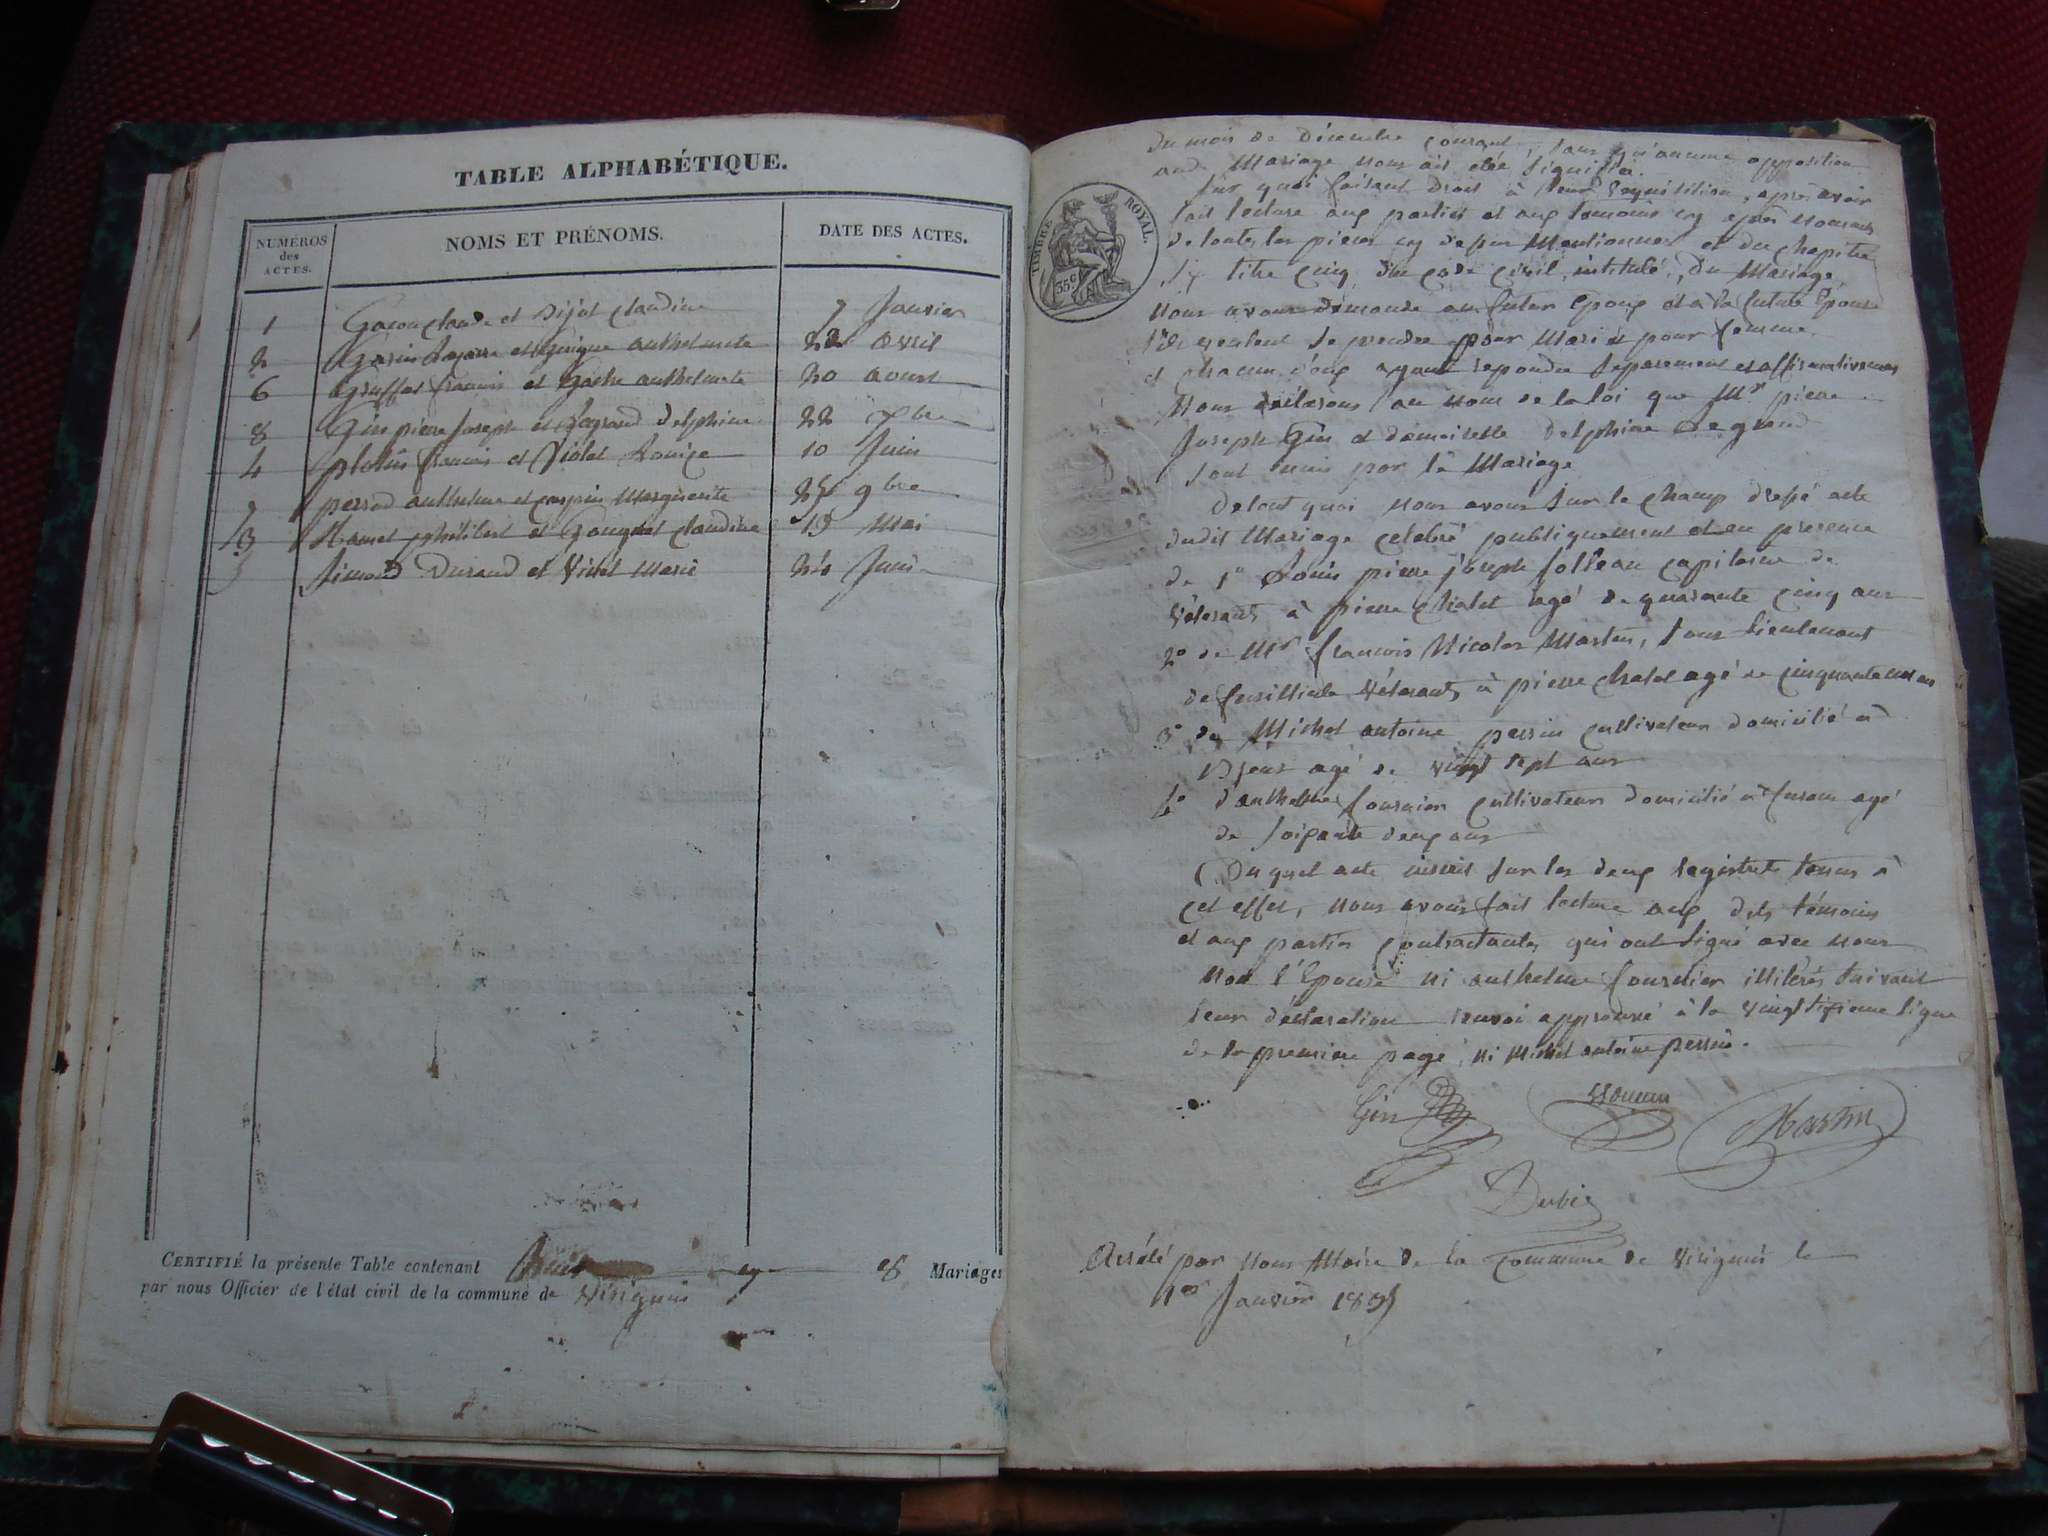 TABLE ALPHABÉTIQUE.
NUMÉROS des ACTES.
NOMS ET PRÉNOMS.
DATE DES ACTES.
1 Gacon Claude et Dijot Claudine 7 Janvier
2 et Guigue anthelmette 22 avril
6 Gruffat francois et Gache anthelmette 20 aoust
8 Gin pierre Joseph et Legrand Delphine 22 Xbre
4 francois et Violet Louise 10 Juin
7 perrod anthelme et Marguerite 25 9bre
3 philibert et Claudine 19 Mai
5 Simond Durand et Violet Marie 24 Juin
CERTIFIÉ la présente Table contenant 8 Mariages
par nous Officier de l'état civil de la commune de Virignin
TIMBRE ROYAL.
35c
Du mois de Décembre courant, sans qu'aucune opposition
aud. Mariage nous ait été signifiée.
Sur quoi faisant droit à leur requisition, après avoir
fait lecture aux parties et aux temoins cy après nommés
de toutes les pieces cy dessus Mentionnées et du chapitre
six titre cinq du code civil, intitulé, du Mariage,
Nous avons demandé au futur Epoux et à la future Epouse
s'ils veulent se prendre pour Mari et pour femme.
et chacun d'eux ayant repondu separement et affirmativement
Nous déclarons au nom de la loi que Mr pierre
Joseph Gin et demoiselle Delphine Legrand
sont unis par le Mariage
De tout quoi nous avons sur le champ dressé acte
dudit Mariage celebré publiquement et en presence
de 1º Louis pierre joseph capitaine de
Véterants à pierre chatel agé de quarante cinq ans
2º de Mr francois Nicolas Martin, sous lieutenant
de fusilliers Véterants à pierre chatel agé de cinquante un ans
3º de Michel antoine perrin cultivateur domicilié à
agé de vingt sept ans
4º d'anthelme fournier cultivateur domicilié à agé
de soixante deux ans
Du quel acte inscrit sur les deux registres tenus à
cet effet, nous avons fait lecture aux dits témoins
et aux parties contractantes, qui ont signé avec nous
Non l'Epouse ni anthelme fournier illiterés suivant
leur déclaration renvoi approuvé à la vingt sixieme ligne
de la premiere page, ni Michel antoine perrin.
Gin
Martin
Arrété par nous Maire de la commune de Virignin le
1er Janvier